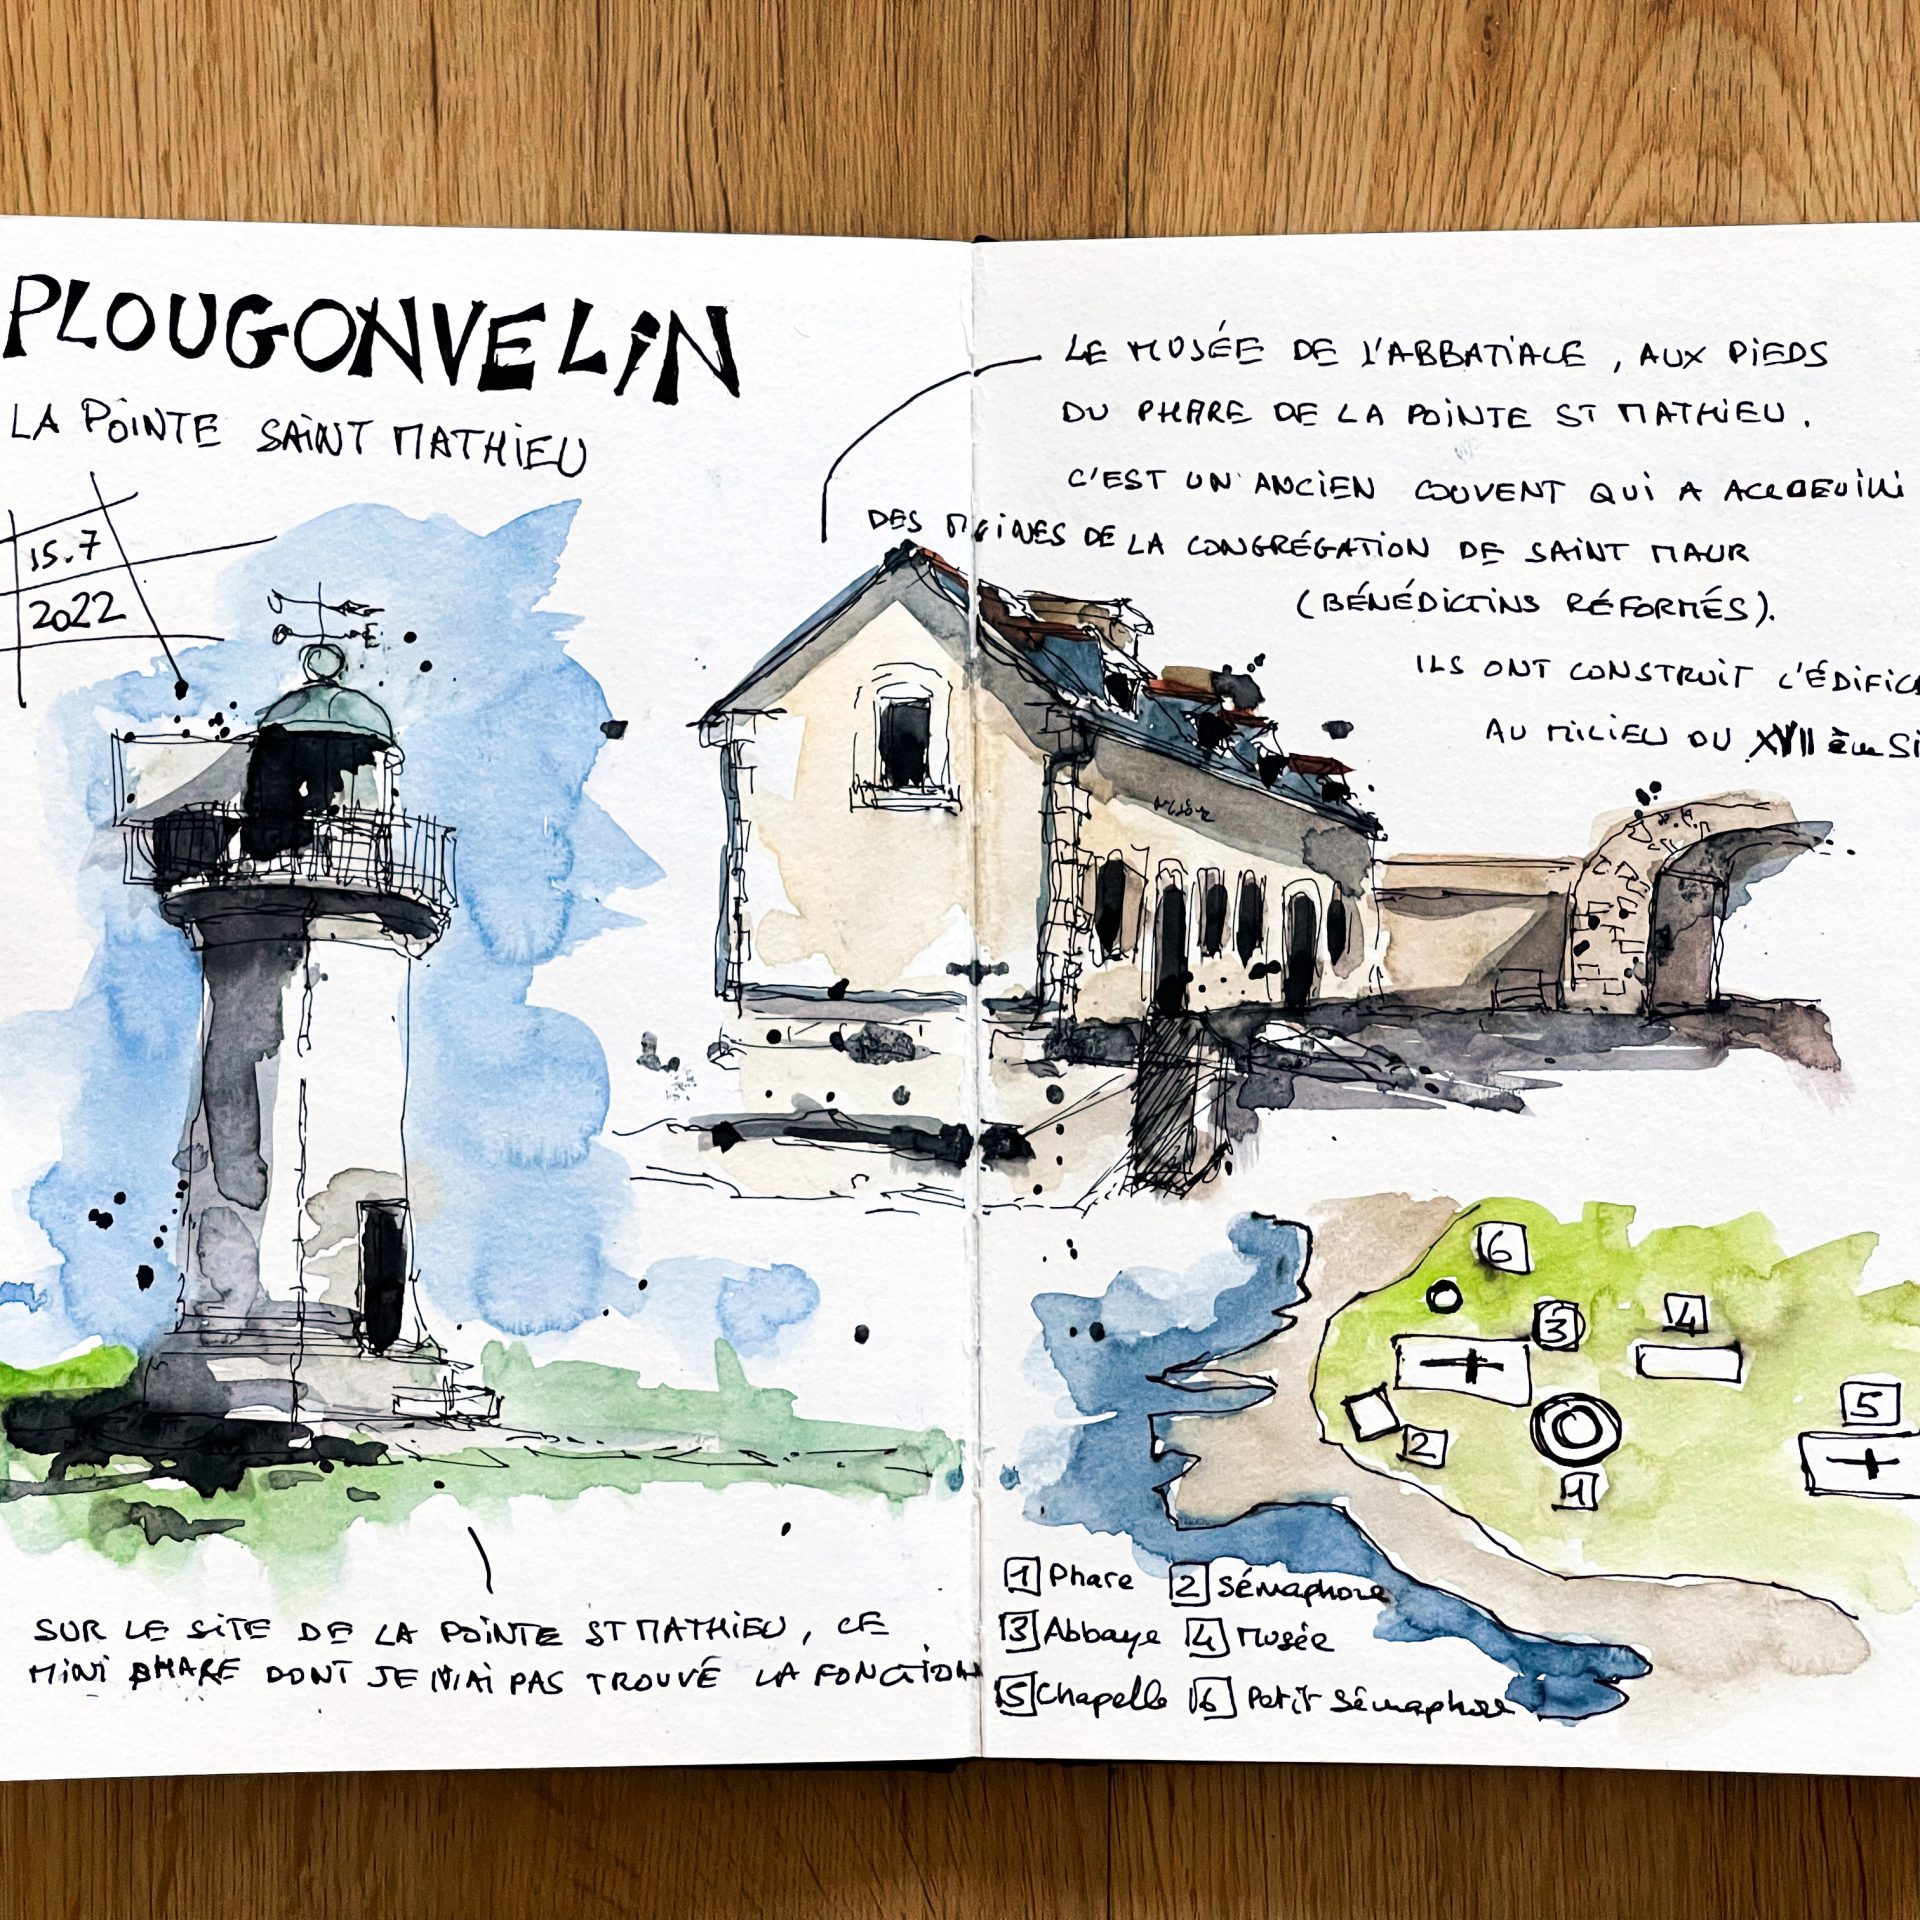 PLOUGONVELIN
LA POINTE SAINT MATHIEU
15.7
2022
LE MUSÉE DE L'ABBATIALE, AUX PIEDS
DU PHARE DE LA POINTE ST MATHIEU.
C'EST UN ANCIEN COUVENT QUI A ACCUEUILLI
DES MOINES DE LA CONGRÉGATION DE SAINT MAUR
(BÉNÉDICTINS RÉFORMÉS).
ILS ONT CONSTRUIT L'ÉDIFIC
AU MILIEU DU XVII ème Si
SUR LE SITE DE LA POINTE ST MATHIEU, CE
MINI PHARE DONT JE N'AI PAS TROUVÉ LA FONCTION
6
3
4
5
2
1
1 Phare 2 Sémaphore
3 Abbaye 4 Musée
5 Chapelle 6 Petit Sémaphore